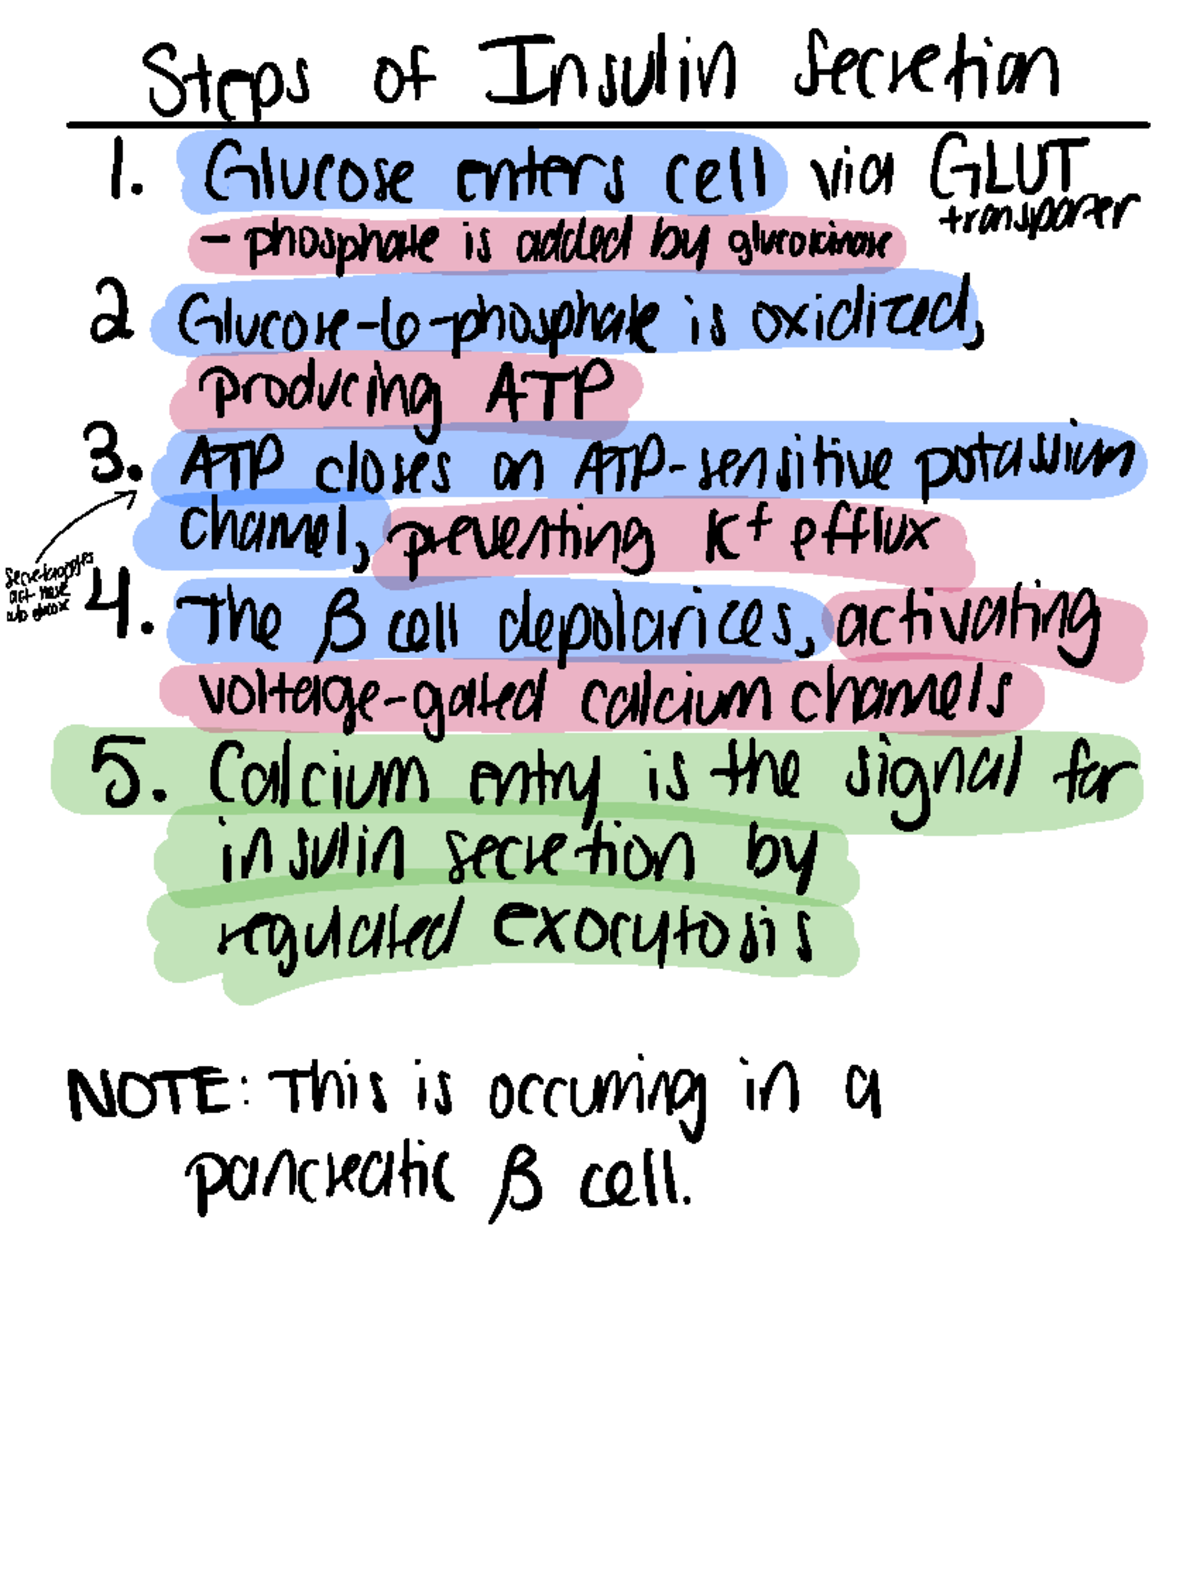 Steps of Insulin Secretion
1. Glucose enters cell via GLUT transporter
- phosphate is added by glucokinase
2 Glucose-6-phosphate is oxidized,
producing ATP
3. ATP closes an ATP-sensitive potassium
channel, preventing K+ efflux
Secretagogues
act here
w/o glucose
4. The β cell depolarizes, activating
voltage-gated calcium channels
5. Calcium entry is the signal for
insulin secretion by
regulated exocytosis
NOTE: This is occurring in a
pancreatic β cell.